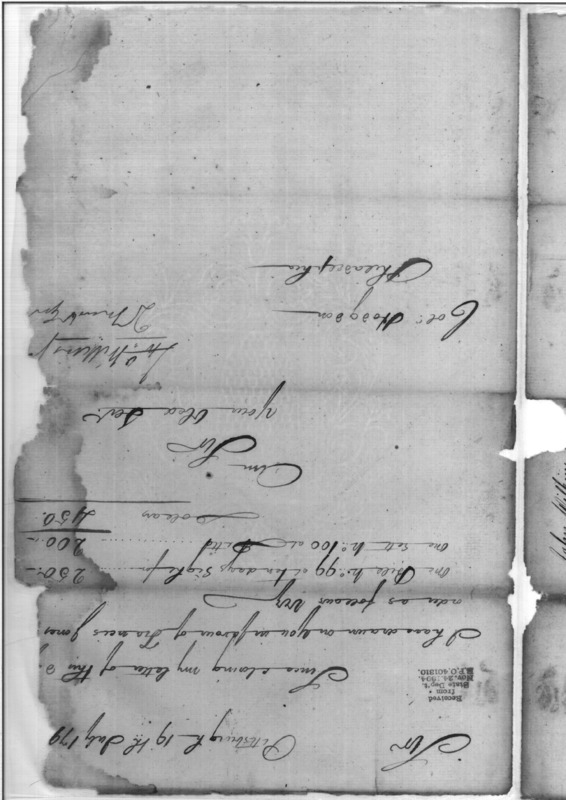 Sir
Pittsburgh 19th July 179
Since closing my letter of this
I have drawn on you in favour of Francis Jones
order as follows Viz
One Bill No. 99 at ten days Sight for 250 -
One sett No. 100 at Ditto 200 -
Dollars 450.
I am
Sir
Your Obed Servt
Jno. Wilkins Jr
Col. Hodgdon
Philadelphia
Received
from
State Dep't.
Nov. 24, 1894.
R.P.O. 401310.
John Wilkins